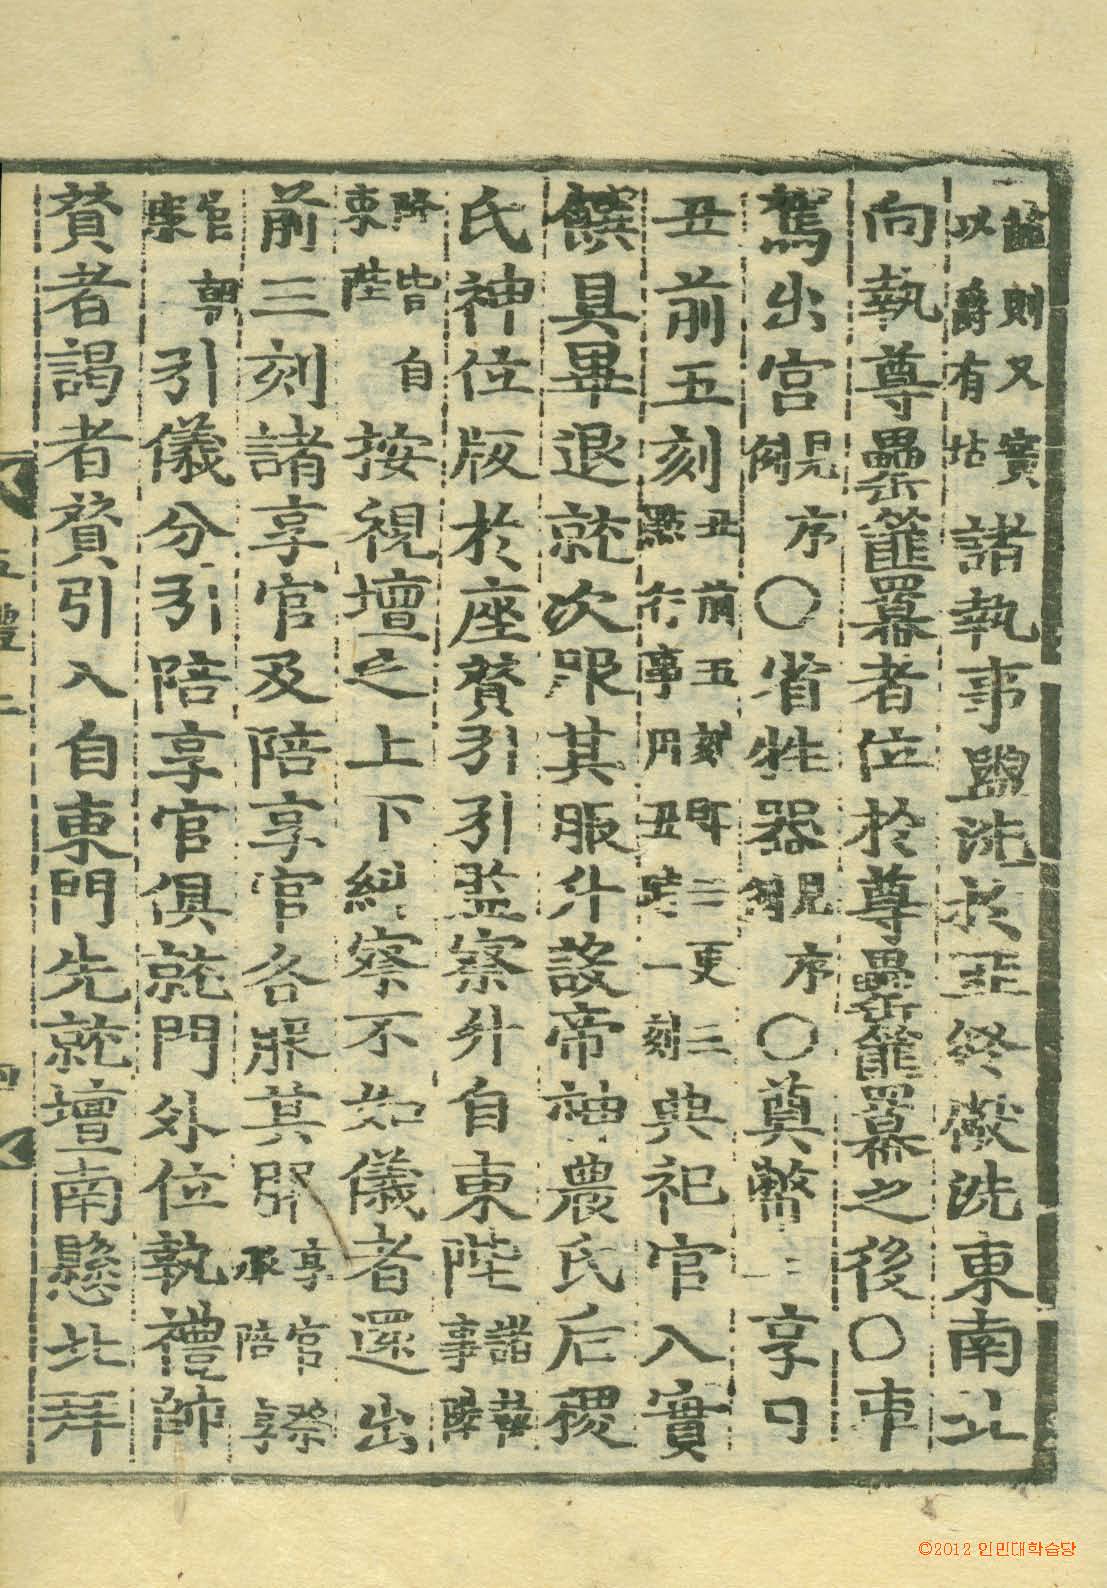 篚則又實以爵有坫諸執事盥洗於亞終獻洗東南北
向執尊罍篚冪者位於尊罍篚冪之後〇車
駕出宮見序例〇省牲器見序例〇奠幣享日
丑前五刻丑前五刻卽三更三點行事用丑時一刻典祀官入實
饌具畢退就次服其服升設帝神農氏后稷
氏神位版於座贊引引監察升自東陛諸執事陞
降皆自東陛按視壇之上下糾察不如儀者還出
前三刻諸享官及陪享官各服其服享官祭服陪享
官朝服引儀分引陪享官俱就門外位執禮帥
贊者謁者贊引入自東門先就壇南懸北拜
五禮二
四
©2012 인민대학습당